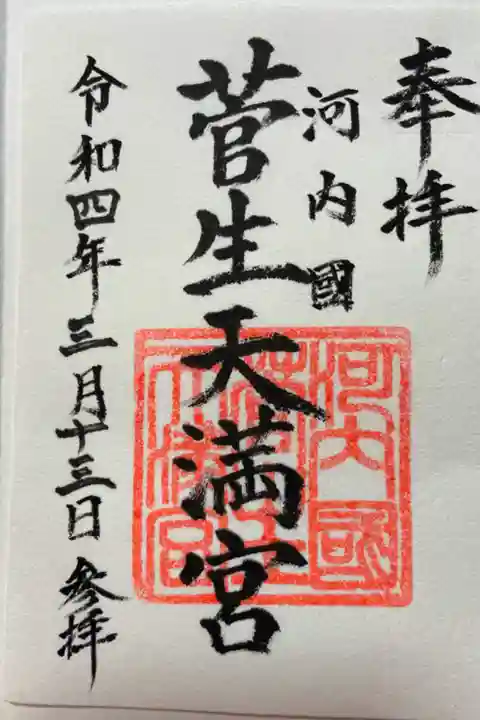 奉拝
河内國
菅生天満宮
令和四年三月十三日参拝
河内國